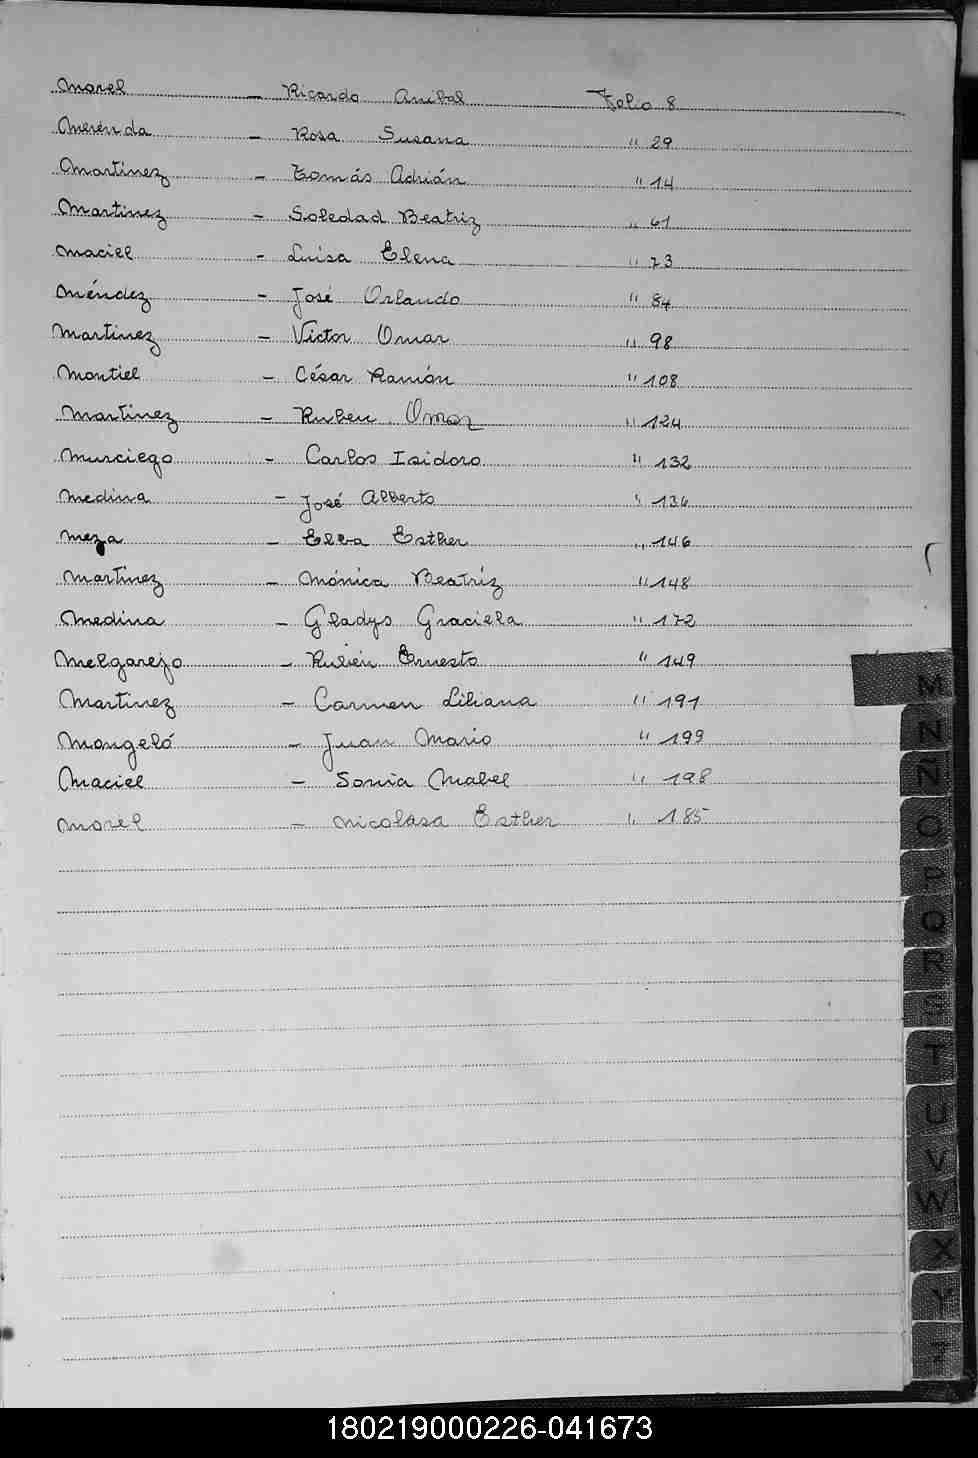 Morel - Ricardo Anibal Folio 8
Merenda - Rosa Susana " 29
Martinez - Tomás Adrián " 14
Martinez - Soledad Beatriz " 61
Maciel - Luisa Elena " 73
Méndez - José Orlando " 84
Martinez - Victor Omar " 98
Montiel - César Ramón " 108
Martinez - Ruben Omar " 124
Murciego - Carlos Isidoro " 132
Medina - José Alberto " 136
Meza - Elva Esther " 146
Martinez - Mónica Beatríz " 148
Medina - Gladys Graciela " 172
Melgarejo - Rubén Ernesto " 149
Martinez - Carmen Liliana " 191
Mongeló - Juan Mario " 199
Maciel - Sonia Mabel " 198
Morel - Nicolasa Esther " 185
M
N
Ñ
O
P
Q
R
S
T
U
V
W
X
Y
Z
180219000226-041673